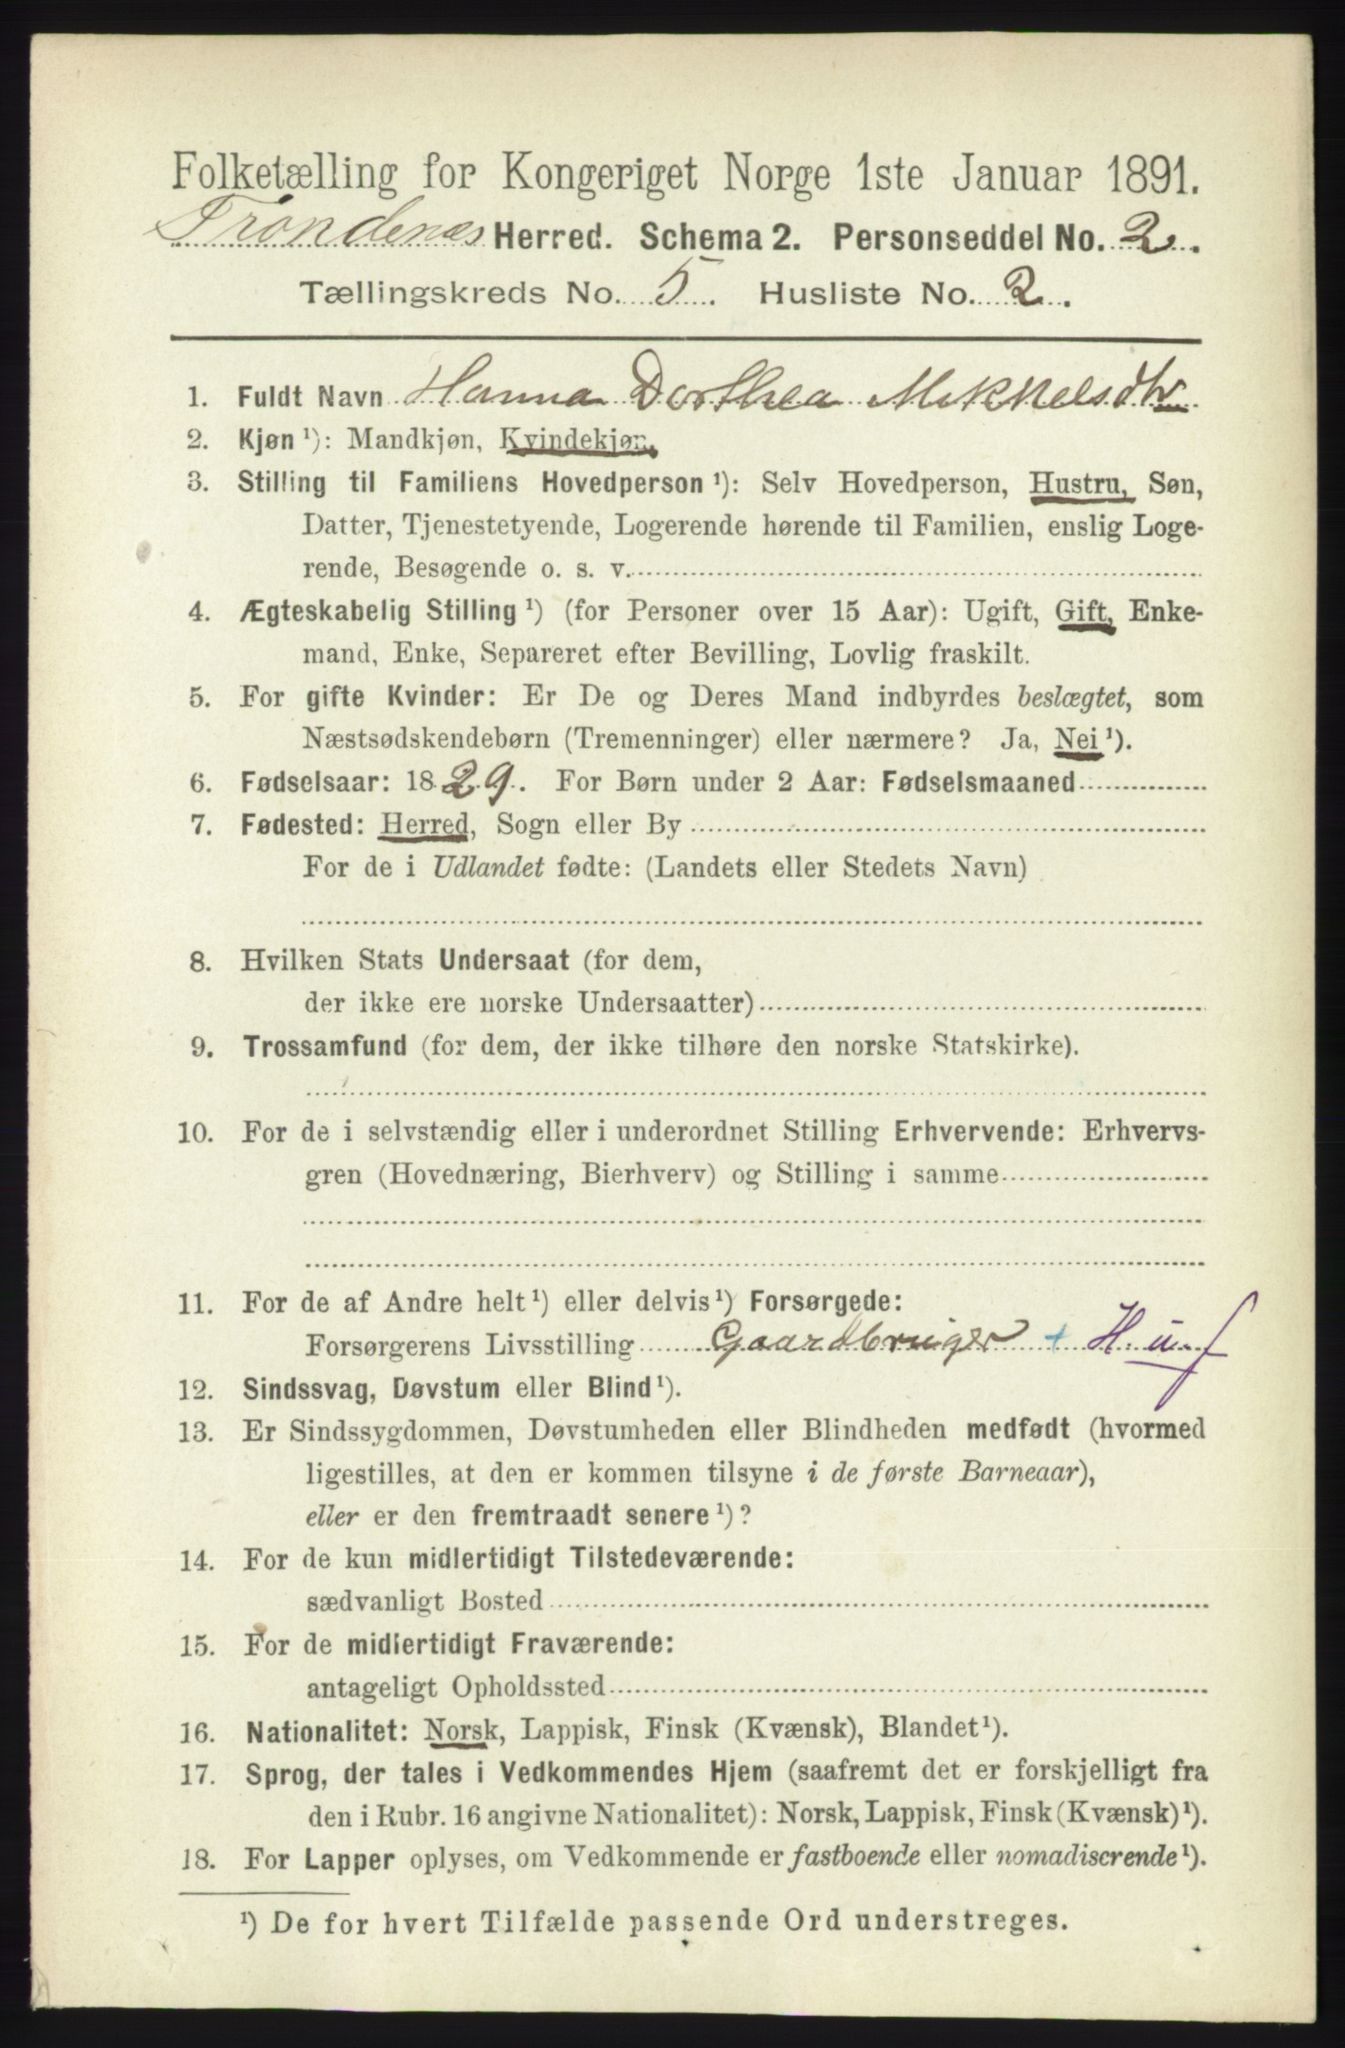 Folketælling for Kongeriget Norge 1ste Januar 1891.
Trondenæs Herred. Schema 2. Personseddel No. 2.
Tællingskreds No. 5. Husliste No. 2.
1. Fuldt Navn Hanna Dorthea Mikkelsdtr
2. Kjøn ¹): Mandkjøn, Kvindekjøn.
3. Stilling til Familiens Hovedperson ¹): Selv Hovedperson, Hustru, Søn,
Datter, Tjenestetyende, Logerende hørende til Familien, enslig Loge-
rende, Besøgende o. s. v.
4. Ægteskabelig Stilling ¹) (for Personer over 15 Aar): Ugift, Gift, Enke-
mand, Enke, Separeret efter Bevilling, Lovlig fraskilt.
5. For gifte Kvinder: Er De og Deres Mand indbyrdes beslægtet, som
Næstsødskendebørn (Tremenninger) eller nærmere? Ja, Nei ¹).
6. Fødselsaar: 1829. For Børn under 2 Aar: Fødselsmaaned
7. Fødested: Herred, Sogn eller By
For de i Udlandet fødte: (Landets eller Stedets Navn)
8. Hvilken Stats Undersaat (for dem,
der ikke ere norske Undersaatter)
9. Trossamfund (for dem, der ikke tilhøre den norske Statskirke).
10. For de i selvstændig eller i underordnet Stilling Erhvervende: Erhvervs-
gren (Hovednæring, Bierhverv) og Stilling i samme
11. For de af Andre helt ¹) eller delvis ¹) Forsørgede:
Forsørgerens Livsstilling Gaardbruger + H u f
12. Sindssvag, Døvstum eller Blind ¹).
13. Er Sindssygdommen, Døvstumheden eller Blindheden medfødt (hvormed
ligestilles, at den er kommen tilsyne i de første Barneaar),
eller er den fremtraadt senere ¹)?
14. For de kun midlertidigt Tilstedeværende:
sædvanligt Bosted
15. For de midlertidigt Fraværende:
antageligt Opholdssted
16. Nationalitet: Norsk, Lappisk, Finsk (Kvænsk), Blandet ¹).
17. Sprog, der tales i Vedkommendes Hjem (saafremt det er forskjelligt fra
den i Rubr. 16 angivne Nationalitet): Norsk, Lappisk, Finsk (Kvænsk) ¹).
18. For Lapper oplyses, om Vedkommende er fastboende eller nomadiserende ¹).
¹) De for hvert Tilfælde passende Ord understreges.